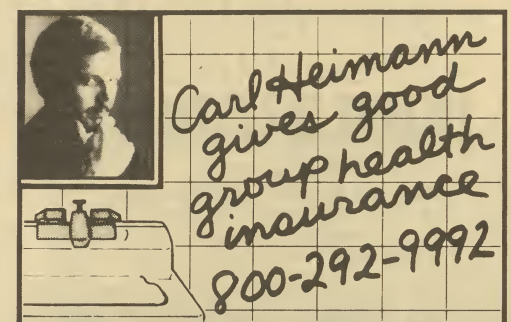 Carl Heimann
gives good
group health
insurance
800-292-9992